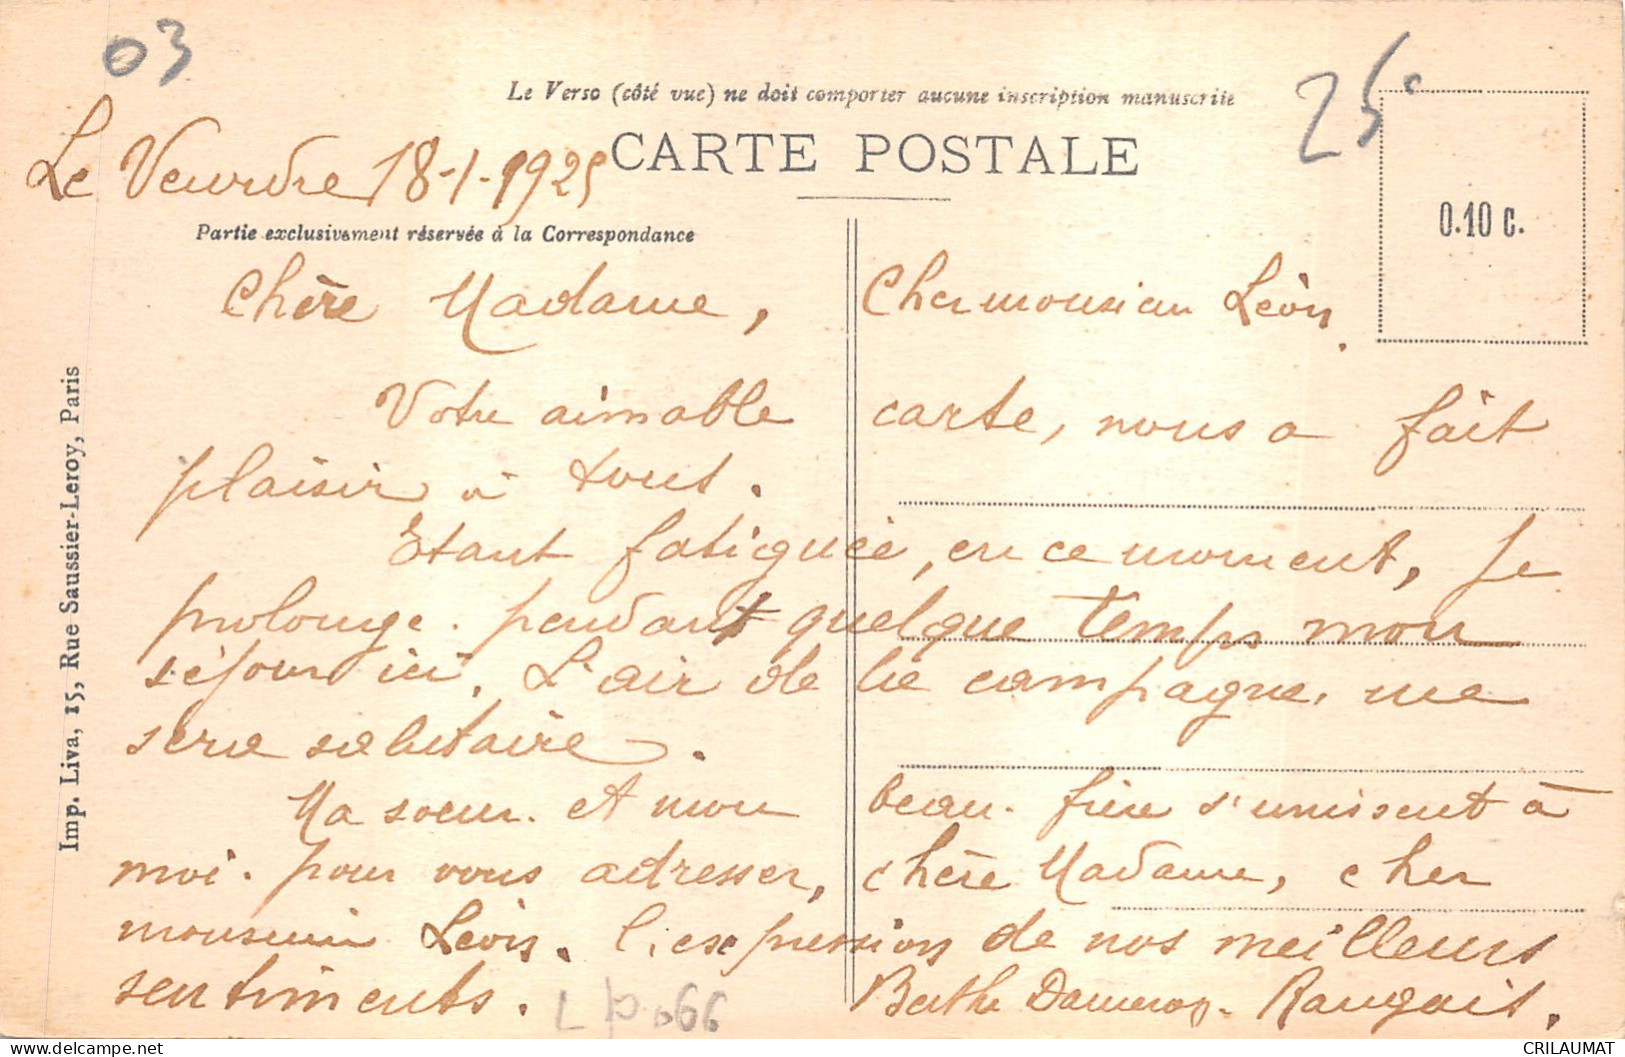 03
25c
Le Verso (côté vue) ne doit comporter aucune inscription manuscrite
CARTE POSTALE
Le Veurdre 18-1-1925
0.10 C.
Partie exclusivement réservée à la Correspondance
Chère Madame, Cher monsieur Léon.
Votre aimable carte, nous a fait
plaisir à tous.
Etant fatiguée, en ce moment, je
prolonge pendant quelque temps mon
séjour ici. L'air de la campagne, me
sera salutaire.
Ma soeur et mon beau-frère s'unissent à
moi pour vous adresser, chère Madame, cher
monsieur Léon, l'expression de nos meilleurs
sentiments. Berthe
Imp. Liva, 15, Rue Saussier-Leroy, Paris
CRILAUMAT